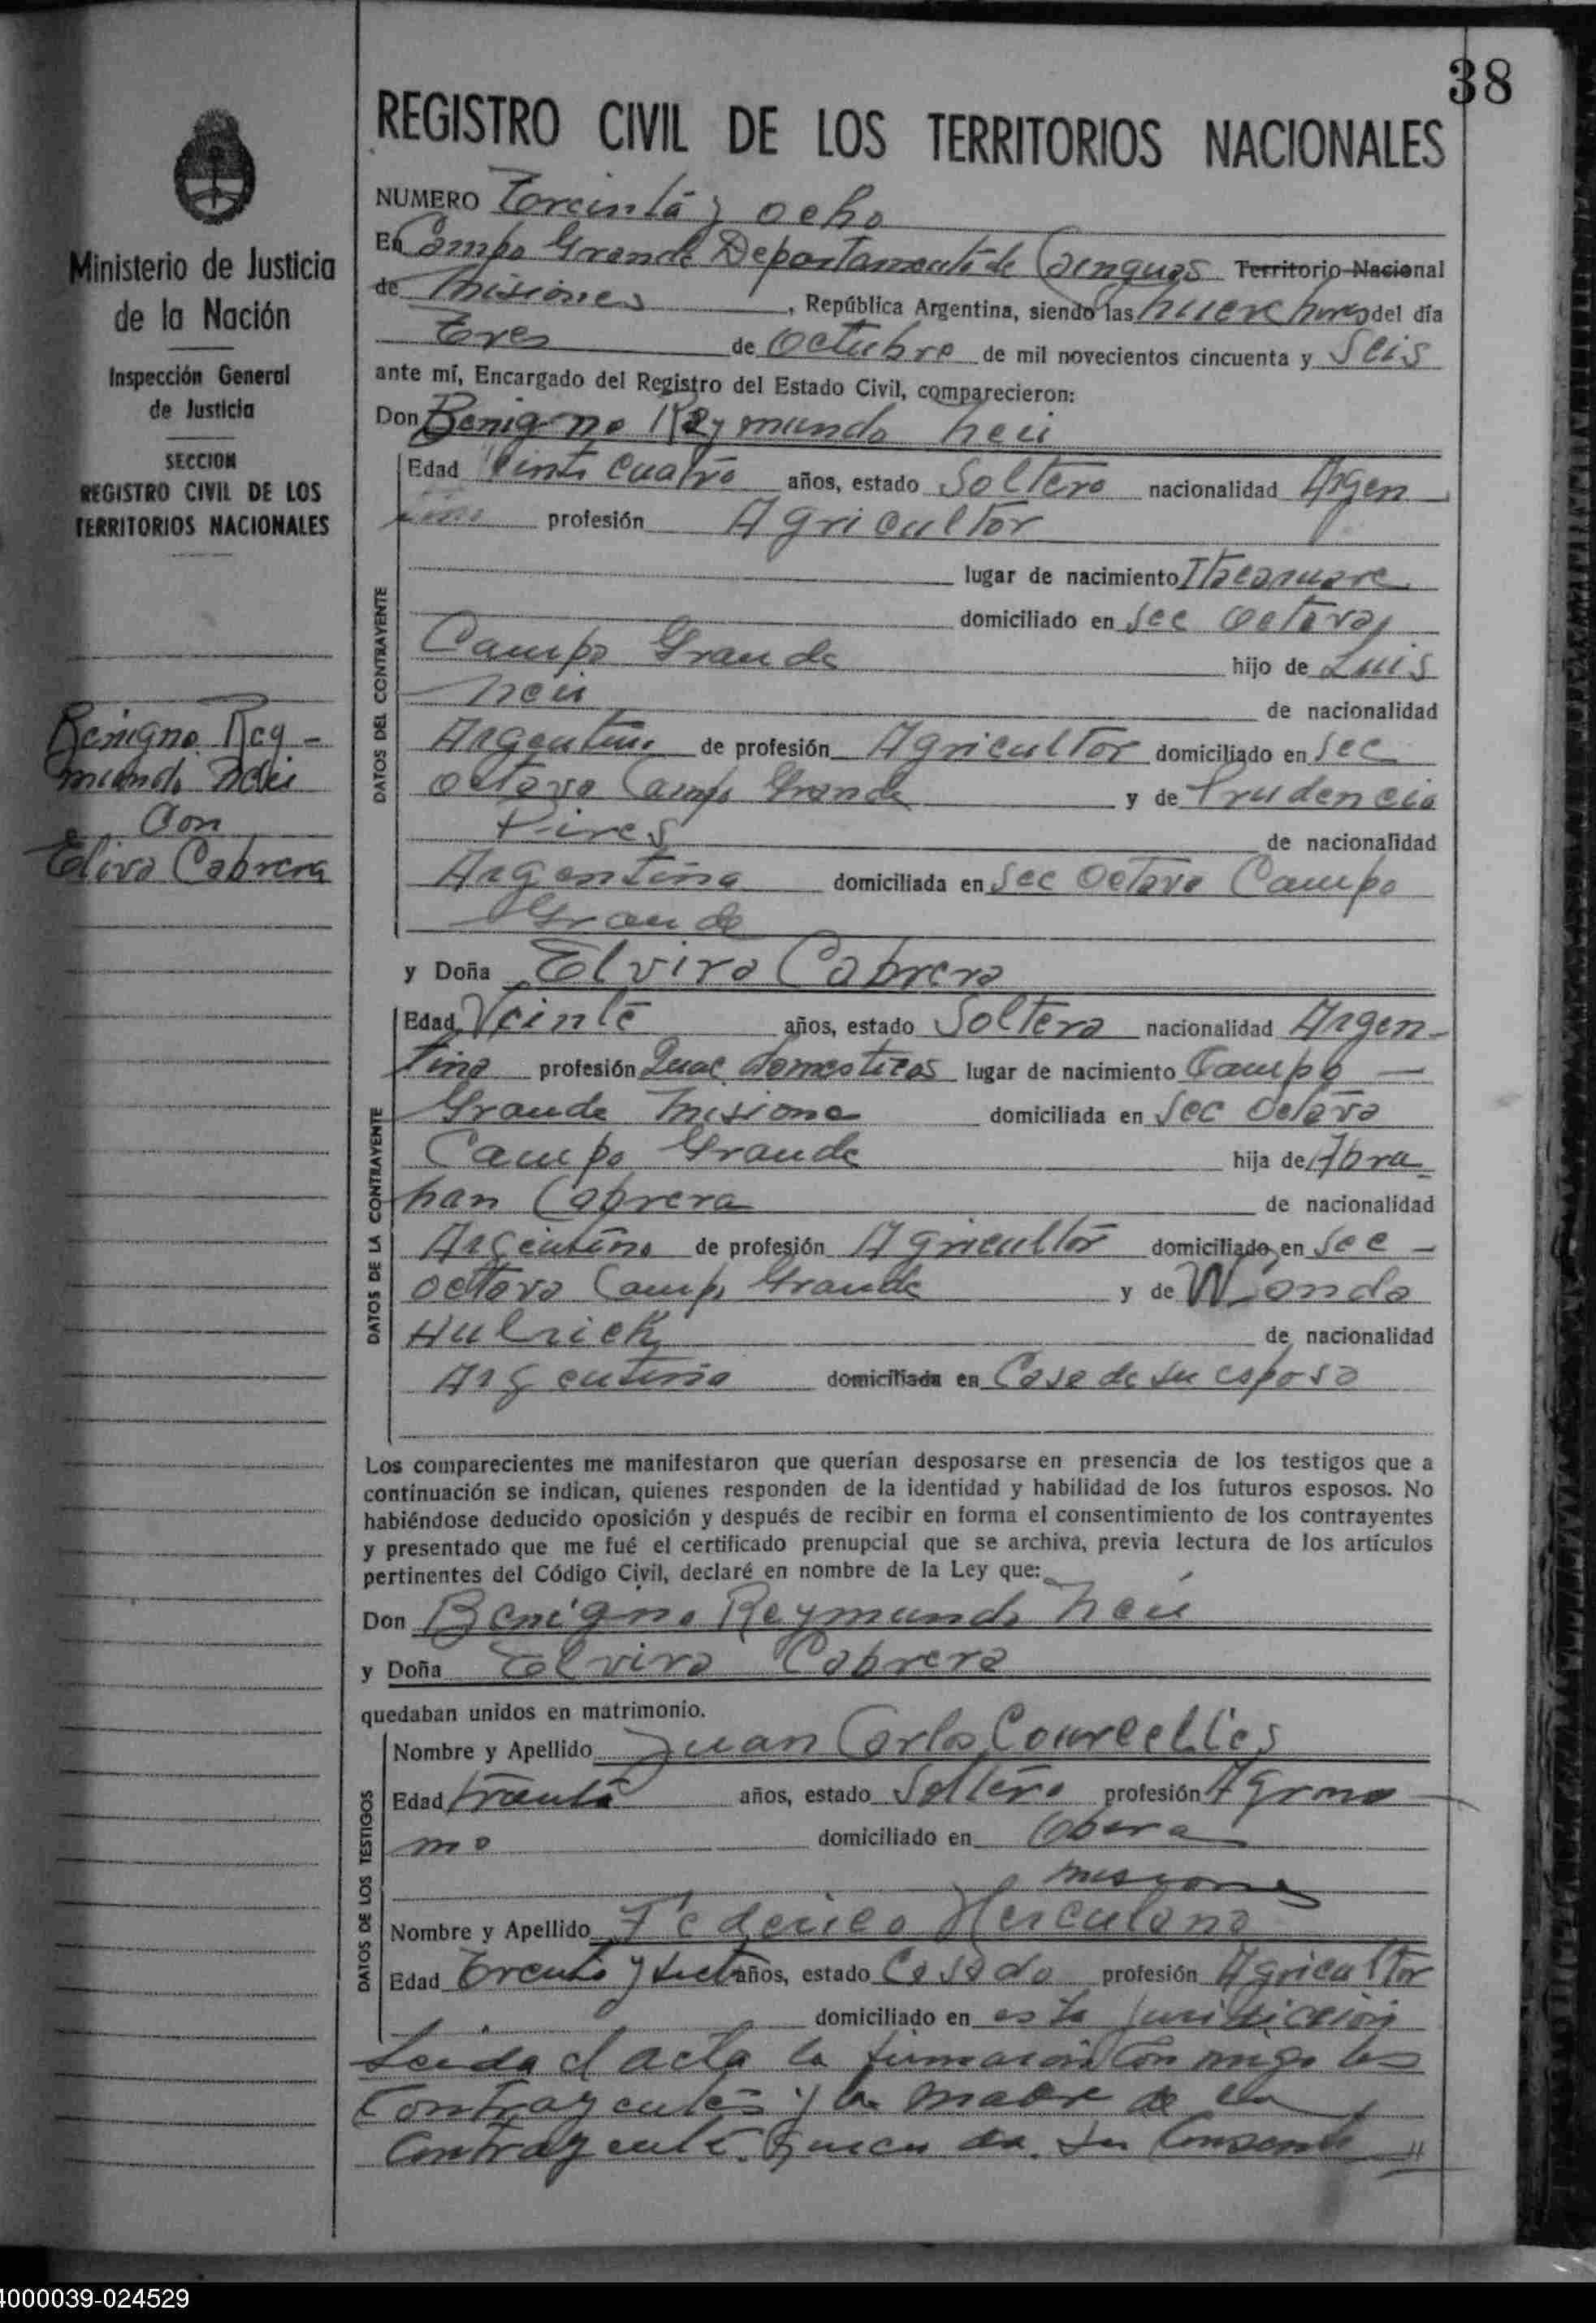 38
REGISTRO CIVIL DE LOS TERRITORIOS NACIONALES
Ministerio de Justicia
de la Nación
Inspección General
de Justicia
SECCION
REGISTRO CIVIL DE LOS
TERRITORIOS NACIONALES
Benigno Rey-
mundo
Con
Elvira Cabrera
NUMERO Treinta y ocho
En Campo Grande Departamento de Cainguas Territorio Nacional
de Misiones, República Argentina, siendo las nueve horas del día
Tres de Octubre de mil novecientos cincuenta y Seis
ante mí, Encargado del Registro del Estado Civil, comparecieron:
Don Benigno Reymundo Neü
DATOS DEL CONTRAYENTE
Edad Veinti Cuatro años, estado Soltero nacionalidad Argen
tino profesión Agricultor
lugar de nacimiento Itacaruare
domiciliado en Sec Octava,
Campo Grande hijo de Luis
Neü de nacionalidad
Argentino de profesión Agricultor domiciliado en Sec
octava Campo Grande y de Prudencia
Pires de nacionalidad
Argentina domiciliada en Sec Octava Campo
Grande
y Doña Elvira Cabrera
DATOS DE LA CONTRAYENTE
Edad Veinte años, estado Soltera nacionalidad Argen-
tina profesión Queac domesticos lugar de nacimiento Campo
Grande Misiones domiciliada en Sec Octava
Campo Grande hija de Abra-
han Cabrera de nacionalidad
Argentino de profesión Agricultor domiciliado en Sec-
octava Campo Grande y de Wanda
Hulrich de nacionalidad
Argentina domiciliada en Casa de su esposo
Los comparecientes me manifestaron que querían desposarse en presencia de los testigos que a
continuación se indican, quienes responden de la identidad y habilidad de los futuros esposos. No
habiéndose deducido oposición y después de recibir en forma el consentimiento de los contrayentes
y presentado que me fué el certificado prenupcial que se archiva, previa lectura de los artículos
pertinentes del Código Civil, declaré en nombre de la Ley que:
Don Benigno Reymundo Neü
y Doña Elvira Cabrera
quedaban unidos en matrimonio.
DATOS DE LOS TESTIGOS
Nombre y Apellido Juan Carlos Courcelles
Edad treinta años, estado Soltero profesión Agrono
mo domiciliado en Obera
misiones
Nombre y Apellido Federico Herculano
Edad Treinta y siete años, estado Casado profesión Agricultor
domiciliado en esta Jurisdiccion
Leida el acta la firmaron Con migo los
Contrayentes y la madre de la
Contrayente quien da su Consenti
4000039-024529